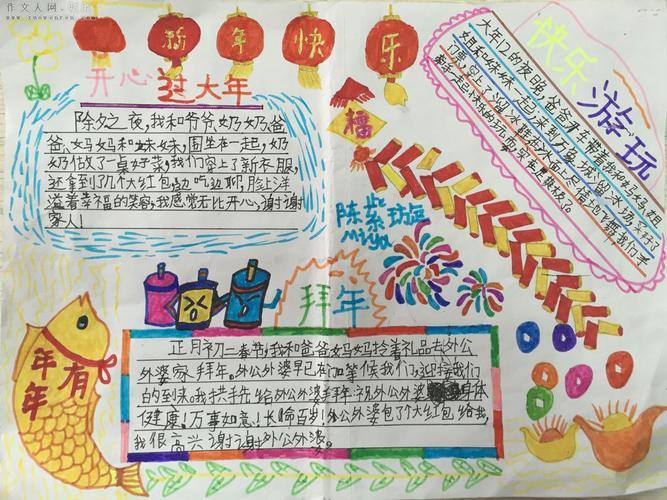 作文人网
www.zuowenren.com
新年快乐
开心过大年
除夕之夜，我和爷爷、奶奶、爸
爸、妈妈和妹妹，围坐在一起，奶
奶做了一桌好菜，我们穿上了新衣服，
还拿到了几个大红包，边吃边聊，脸上洋
溢着幸福的笑容，我感觉无比开心，谢谢
家人！
快乐游玩
大年初的夜晚，爸爸开车带着我和妈妈、姐
姐和妹妹一起
福
陈紫璇
Miya
拜年
年年有
正月初二春节，我和爸爸妈妈拎着礼品去外公
外婆家拜年。外公外婆早已在门口等候我们，迎接我们
的到来。我拱手先给外公外婆拜年：祝外公外婆身体
健康！万事如意！长命百岁！外公外婆包了个大红包给我，
我很高兴谢谢外公外婆。